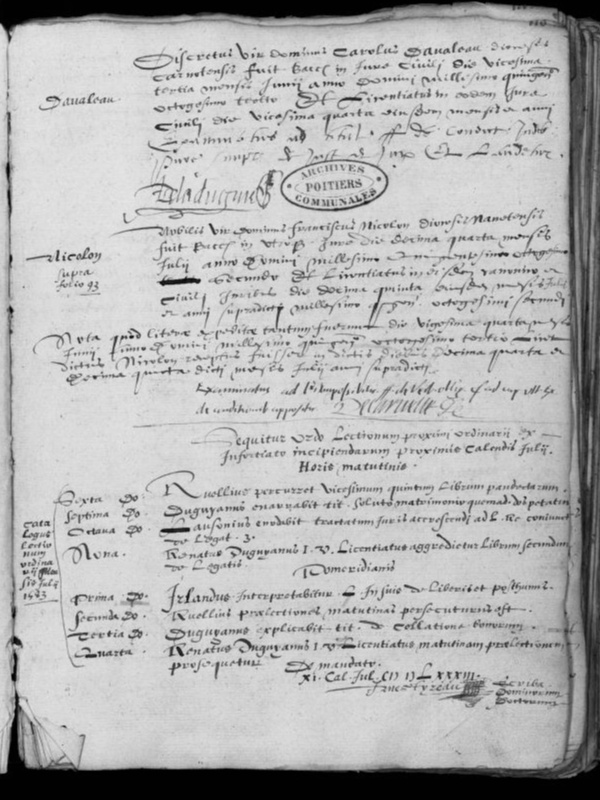 Davaleau
Discretus vir dominus Carolus Davaleau diocesis
Carnotensis fuit Bacc in Jure Civili die vicesima
tertia mensis Junii anno domini millesimo quingen
octogesimo tertio Et Licentiatus in eodem Jure
Civili die vicesima quarta eiusdem mensis et anni
Examinatus ad
ARCHIVES
POITIERS
COMMUNALES
Nicolon
supra
folio 93
Nobilis vir dominus Franciscus Nicolon diocesis Nanetensis
fuit Bacc in utroq Jure die decima quarta mensis
Julii anno domini millesimo quingentesimo octogesimo
secundo Et Licentiatus in eisdem canonico et
Civili Juribus die decima quinta eiusdem mensis Julii
et anni supradicti millesimo quingen octogesimi secundi
Nota quod literae expeditae tantum fuerunt die vigesima quarta mensis
Junii anno domini millesimo quingen octogesimo tertio licet
dictus Nicolon receptus fuisset in dictis diebus decima quarta et
decima quinta dicti mensis Julii anni supradicti
Examinatus ad
de conditionib appositis
Sequitur Ordo Lectionum proximi ordinarii ex
Infortiato incipiendarum proximis Calendis Julii.
Horis matutinis.
Cata
logus
lectio
num
ordina
rii
Julii
1583
Sexta Ruellius percurret vicesimum quintum Librum pandectarum.
Septima Duguyanus enarrabit tit. soluto matrimonio quemad. dos petatur
Octava Lausonius enodabit tractatum Juris accrescendi ad L. Re coniuncti
de Legat. 3.
Nona. Renatus Duguyanus I. V. Licentiatus aggredietur Librum secundum
de Legatis.
Pomeridianis
Prima Irlandus Interpretabitur L. In suis de Liberis et posthumis.
Secunda Ruellius praelectiones matutinas persecuturus est.
Tertia Duguyanus explicabit tit. de Collatione bonorum.
Quarta Renatus Duguyanus I. V. Licentiatus matutinam praelectionem
prosequetur.
De mandato.
XI. Cal. Jul. LXXXIII.
Scriba
Dominorum
Doctorum